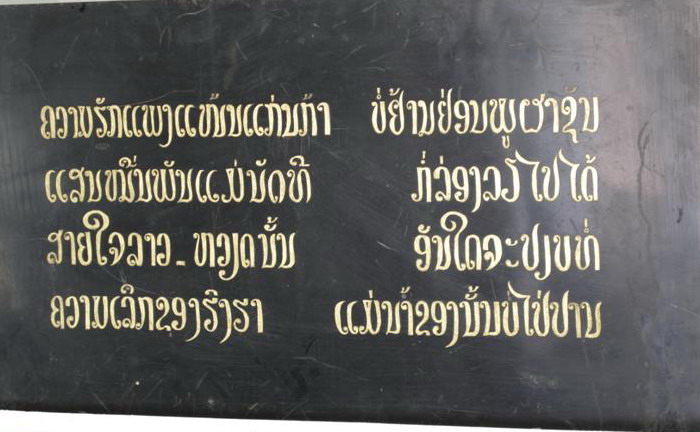 ຄວາມຮັກແພງແໜ້ນແກ່ນກ້າ ບໍ່ຢ້ານຢ່ອນພູຜາຊັນ
ແສນໝື່ນພັນແມ່ນັດທີ ກໍ່ລ່ອງລຽໄປໄດ້
ສາຍໃຈລາວ_ຫວຽດນັ້ນ ອັນໃດຈະປຽບທໍ່
ຄວາມເລິກຂອງຮົງຮາ ແມ່ນ້ຳຂອງນັ້ນບໍ່ໄປ່ປານ